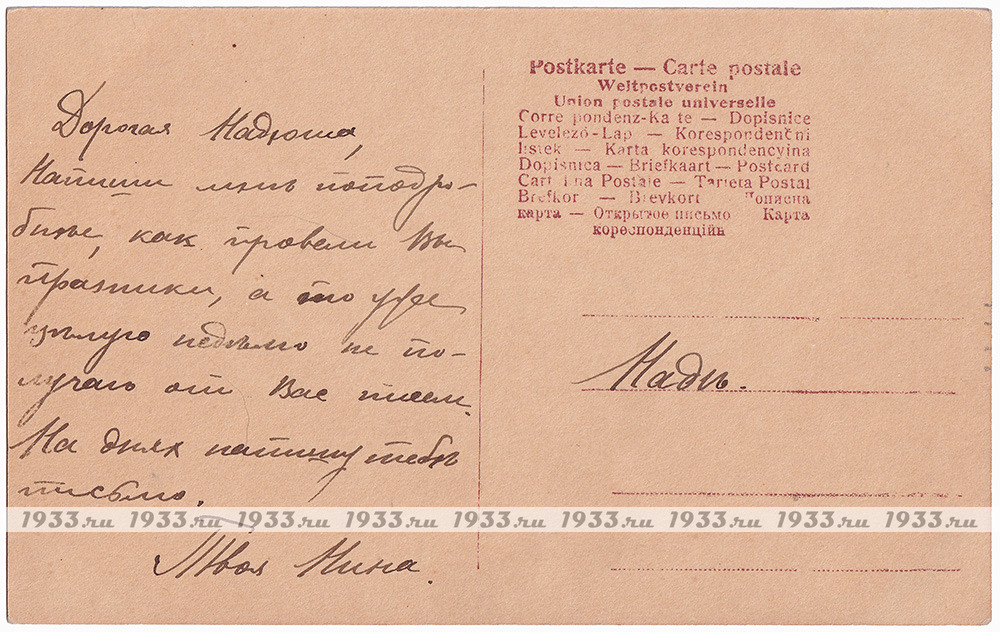 Дорогая Надюша,
Напиши мнѣ поподро-
бнѣе, как провели Вы
празники, а то уже
цѣлую недѣлю не по-
лучаю от Вас писем.
На днях напишу тебѣ
письмо.
Твоя Нина.
Postkarte — Carte postale
Weltpostverein
Union postale universelle
Corre pondenz-Ka te — Dopisnice
Levelező-Lap — Korespondenční
listek — Karta korespondencyjna
Dopisnica — Briefkaart — Postcard
Cart lina Postale — Tarjeta Postal
Brefkor — Brevkort Дописна
карта — Открытое письмо Карта
кореспонденційна
Надѣ.
1933.ru 1933.ru 1933.ru 1933.ru 1933.ru 1933.ru 1933.ru 1933.ru 1933.ru